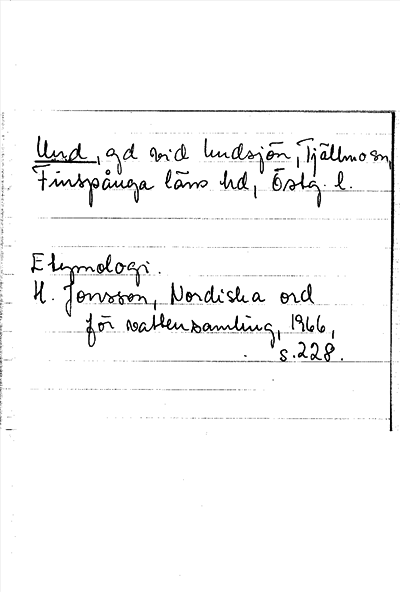 Und, gd vid Undsjön, Tjällmo sn,
Finspånga läns hd, Östg. l.
Etymologi.
H. Jonsson, Nordiska ord
för vattensamling, 1966,
s. 228.